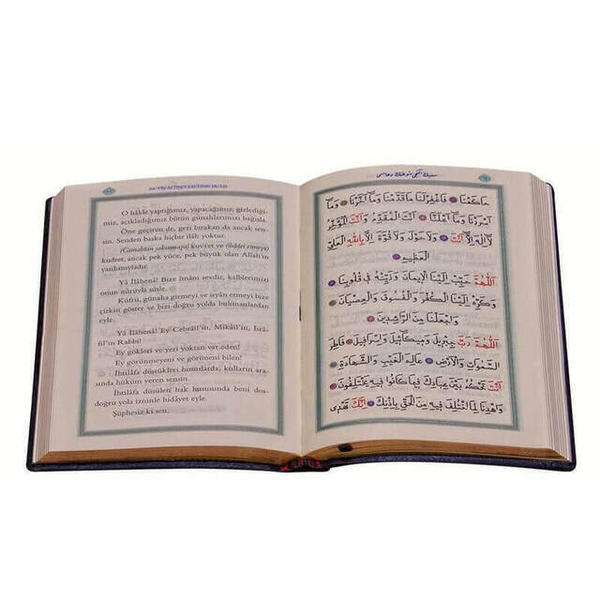 O hâlde yaptığımız, yapacağımız, gizlediği-
miz, açıkladığımız bütün günahlarımızı bağışla.
Öne geçiren de, geri bırakan da ancak sen-
sin. Senden başka hiçbir ilâh yoktur.
(Günahtan sakınmaya) kuvvet ve (ibâdet etmeye)
kudret, ancak pek yüce, pek büyük olan Allah'ın
yardımıyladır.
Yâ İlâhenâ! Bize îmânı sevdir, kalblerimizi
onun nûruyla süsle.
Küfrü, günaha girmeyi ve isyân etmeyi bize
çirkin göster ve bizi doğru yolda bulunanlardan
eyle.
Yâ İlâhenâ! Ey Cebrâîl'in, Mîkâîl'in, İsrâ-
fîl'in Rabbi!
Ey gökleri ve yeri yoktan var eden!
Ey görünmeyeni ve görüneni bilen!
İhtilâfa düştükleri hususlarda, kulların ara-
sında hüküm veren sensin.
İhtilâfa düşülen hak hususunda beni dos-
doğru yola izninle hidâyet eyle.
Şüphesiz ki sen,
مَا كَتَبْنَا فَاغْفِرْ لَنَا مَا قَدَّمْنَا وَمَا أَخَّرْنَا وَمَا
أَسْرَرْنَا وَمَا أَعْلَنَّا أَنْتَ الْمُقَدِّمُ وَأَنْتَ الْمُؤَخِّرُ
لَا إِلَهَ إِلَّا أَنْتَ وَلَا حَوْلَ وَلَا قُوَّةَ إِلَّا بِاللهِ الْعَلِيِّ
الْعَظِيمِ
اَللَّهُمَّ حَبِّبْ إِلَيْنَا الْإِيمَانَ وَزَيِّنْهُ فِي قُلُوبِنَا
وَكَرِّهْ إِلَيْنَا الْكُفْرَ وَالْفُسُوقَ وَالْعِصْيَانَ
وَاجْعَلْنَا مِنَ الرَّاشِدِينَ
اَللَّهُمَّ رَبَّ جِبْرِيلَ وَمِيكَائِيلَ وَإِسْرَافِيلَ فَاطِرَ
السَّمٰوَاتِ وَالْأَرْضِ عَالِمَ الْغَيْبِ وَالشَّهَادَةِ
أَنْتَ تَحْكُمُ بَيْنَ عِبَادِكَ فِيمَا كَانُوا فِيهِ يَخْتَلِفُونَ
وَاهْدِنَا لِمَا اخْتُلِفَ فِيهِ مِنَ الْحَقِّ بِإِذْنِكَ إِنَّكَ تَهْدِي